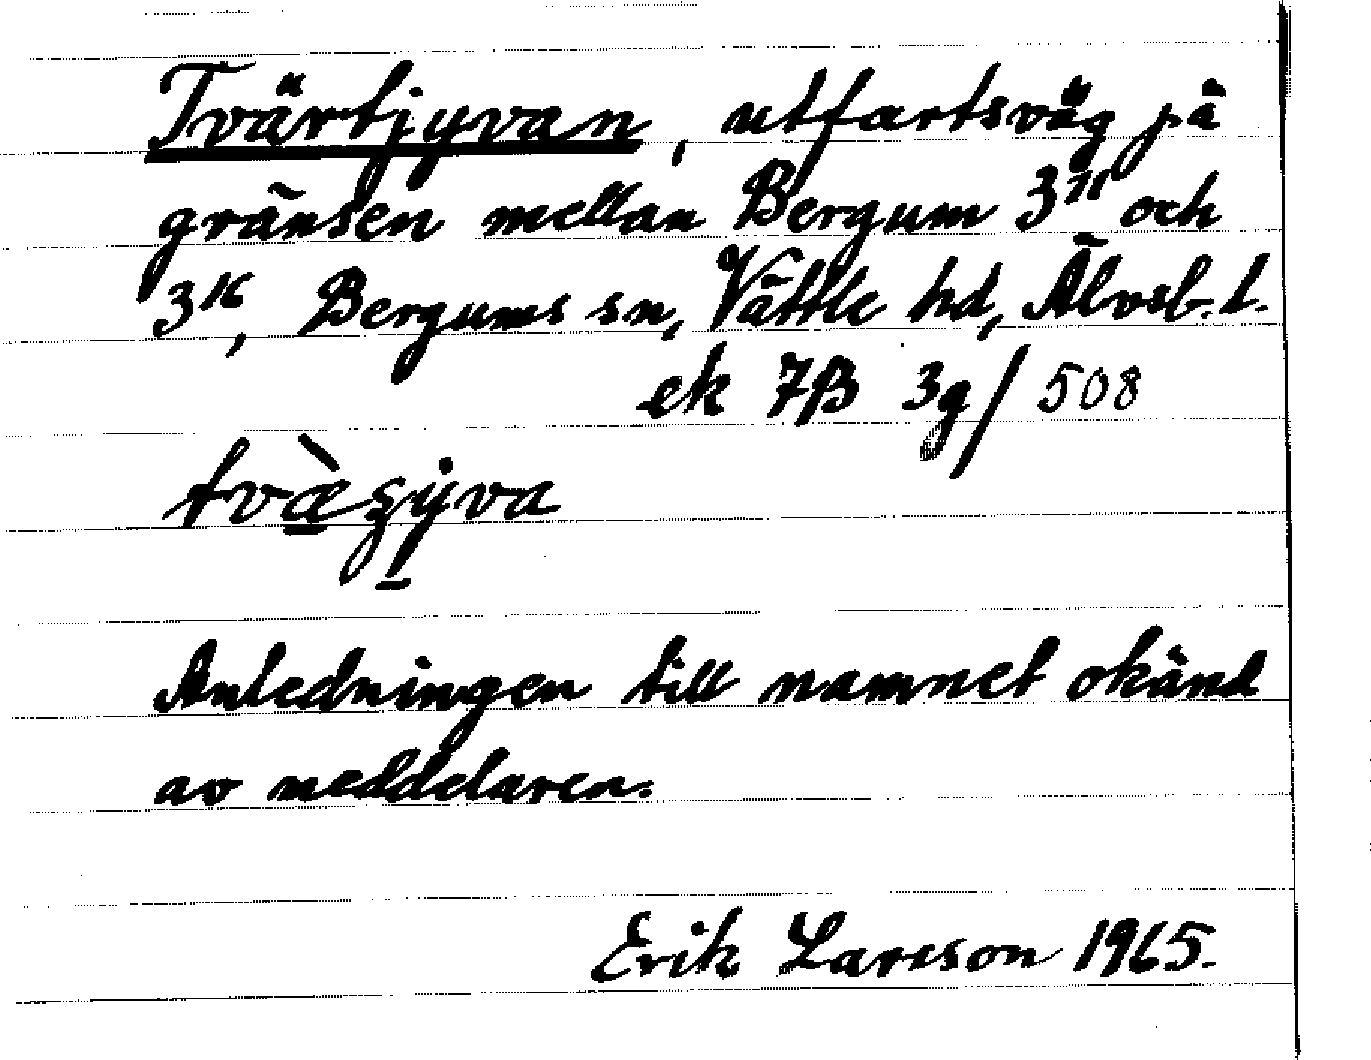 Tvärtjyvan, utfartsväg på
gränsen mellan Bergum 3¹¹ och
3¹⁶, Bergums sn, Vättle hd, Älvsb. l.
ek 7B 3g/508
Anledningen till namnet okänd
av meddelaren.
Erik Larsson 1965.